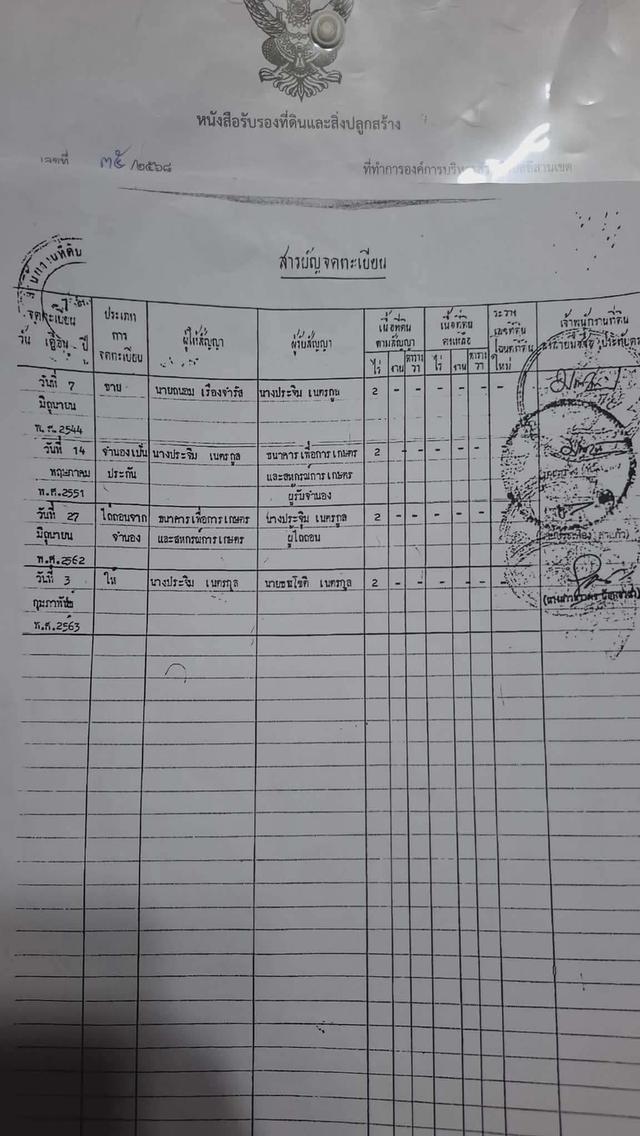 หนังสือรับรองที่ดินและสิ่งปลูกสร้าง
เลขที่ ๓๕ /๒๕๖๘ ที่ทำการองค์การบริหาร
สารบัญจดทะเบียน
จดทะเบียน วัน เดือน ปี
ประเภทการจดทะเบียน
ผู้ให้สัญญา
ผู้รับสัญญา
เนื้อที่ดินตามสัญญา
ไร่ งาน ตารางวา
เนื้อที่ดินคงเหลือ
ไร่ งาน ตารางวา
ระวาง เลขที่ดิน โฉนดที่ดิน ใหม่
เจ้าพนักงานที่ดิน
วันที่ 7 ขาย นายถนอม เรืองจำรัส นางประจิม เนตรกูล 2 - - - - - -
มิถุนายน
พ.ศ.2544
วันที่ 14 จำนองเป็น นางประจิม เนตรกูล ธนาคารเพื่อการเกษตร 2 - - - - - -
พฤษภาคม ประกัน และสหกรณ์การเกษตร
พ.ศ.2551 ผู้รับจำนอง
วันที่ 27 ไถ่ถอนจาก ธนาคารเพื่อการเกษตร นางประจิม เนตรกูล 2 - - - - - -
มิถุนายน จำนอง และสหกรณ์การเกษตร ผู้ไถ่ถอน
พ.ศ.2562
วันที่ 3 ให้ นางประจิม เนตรกูล เนตรกูล 2 - - - - - -
กุมภาพันธ์
พ.ศ.2563